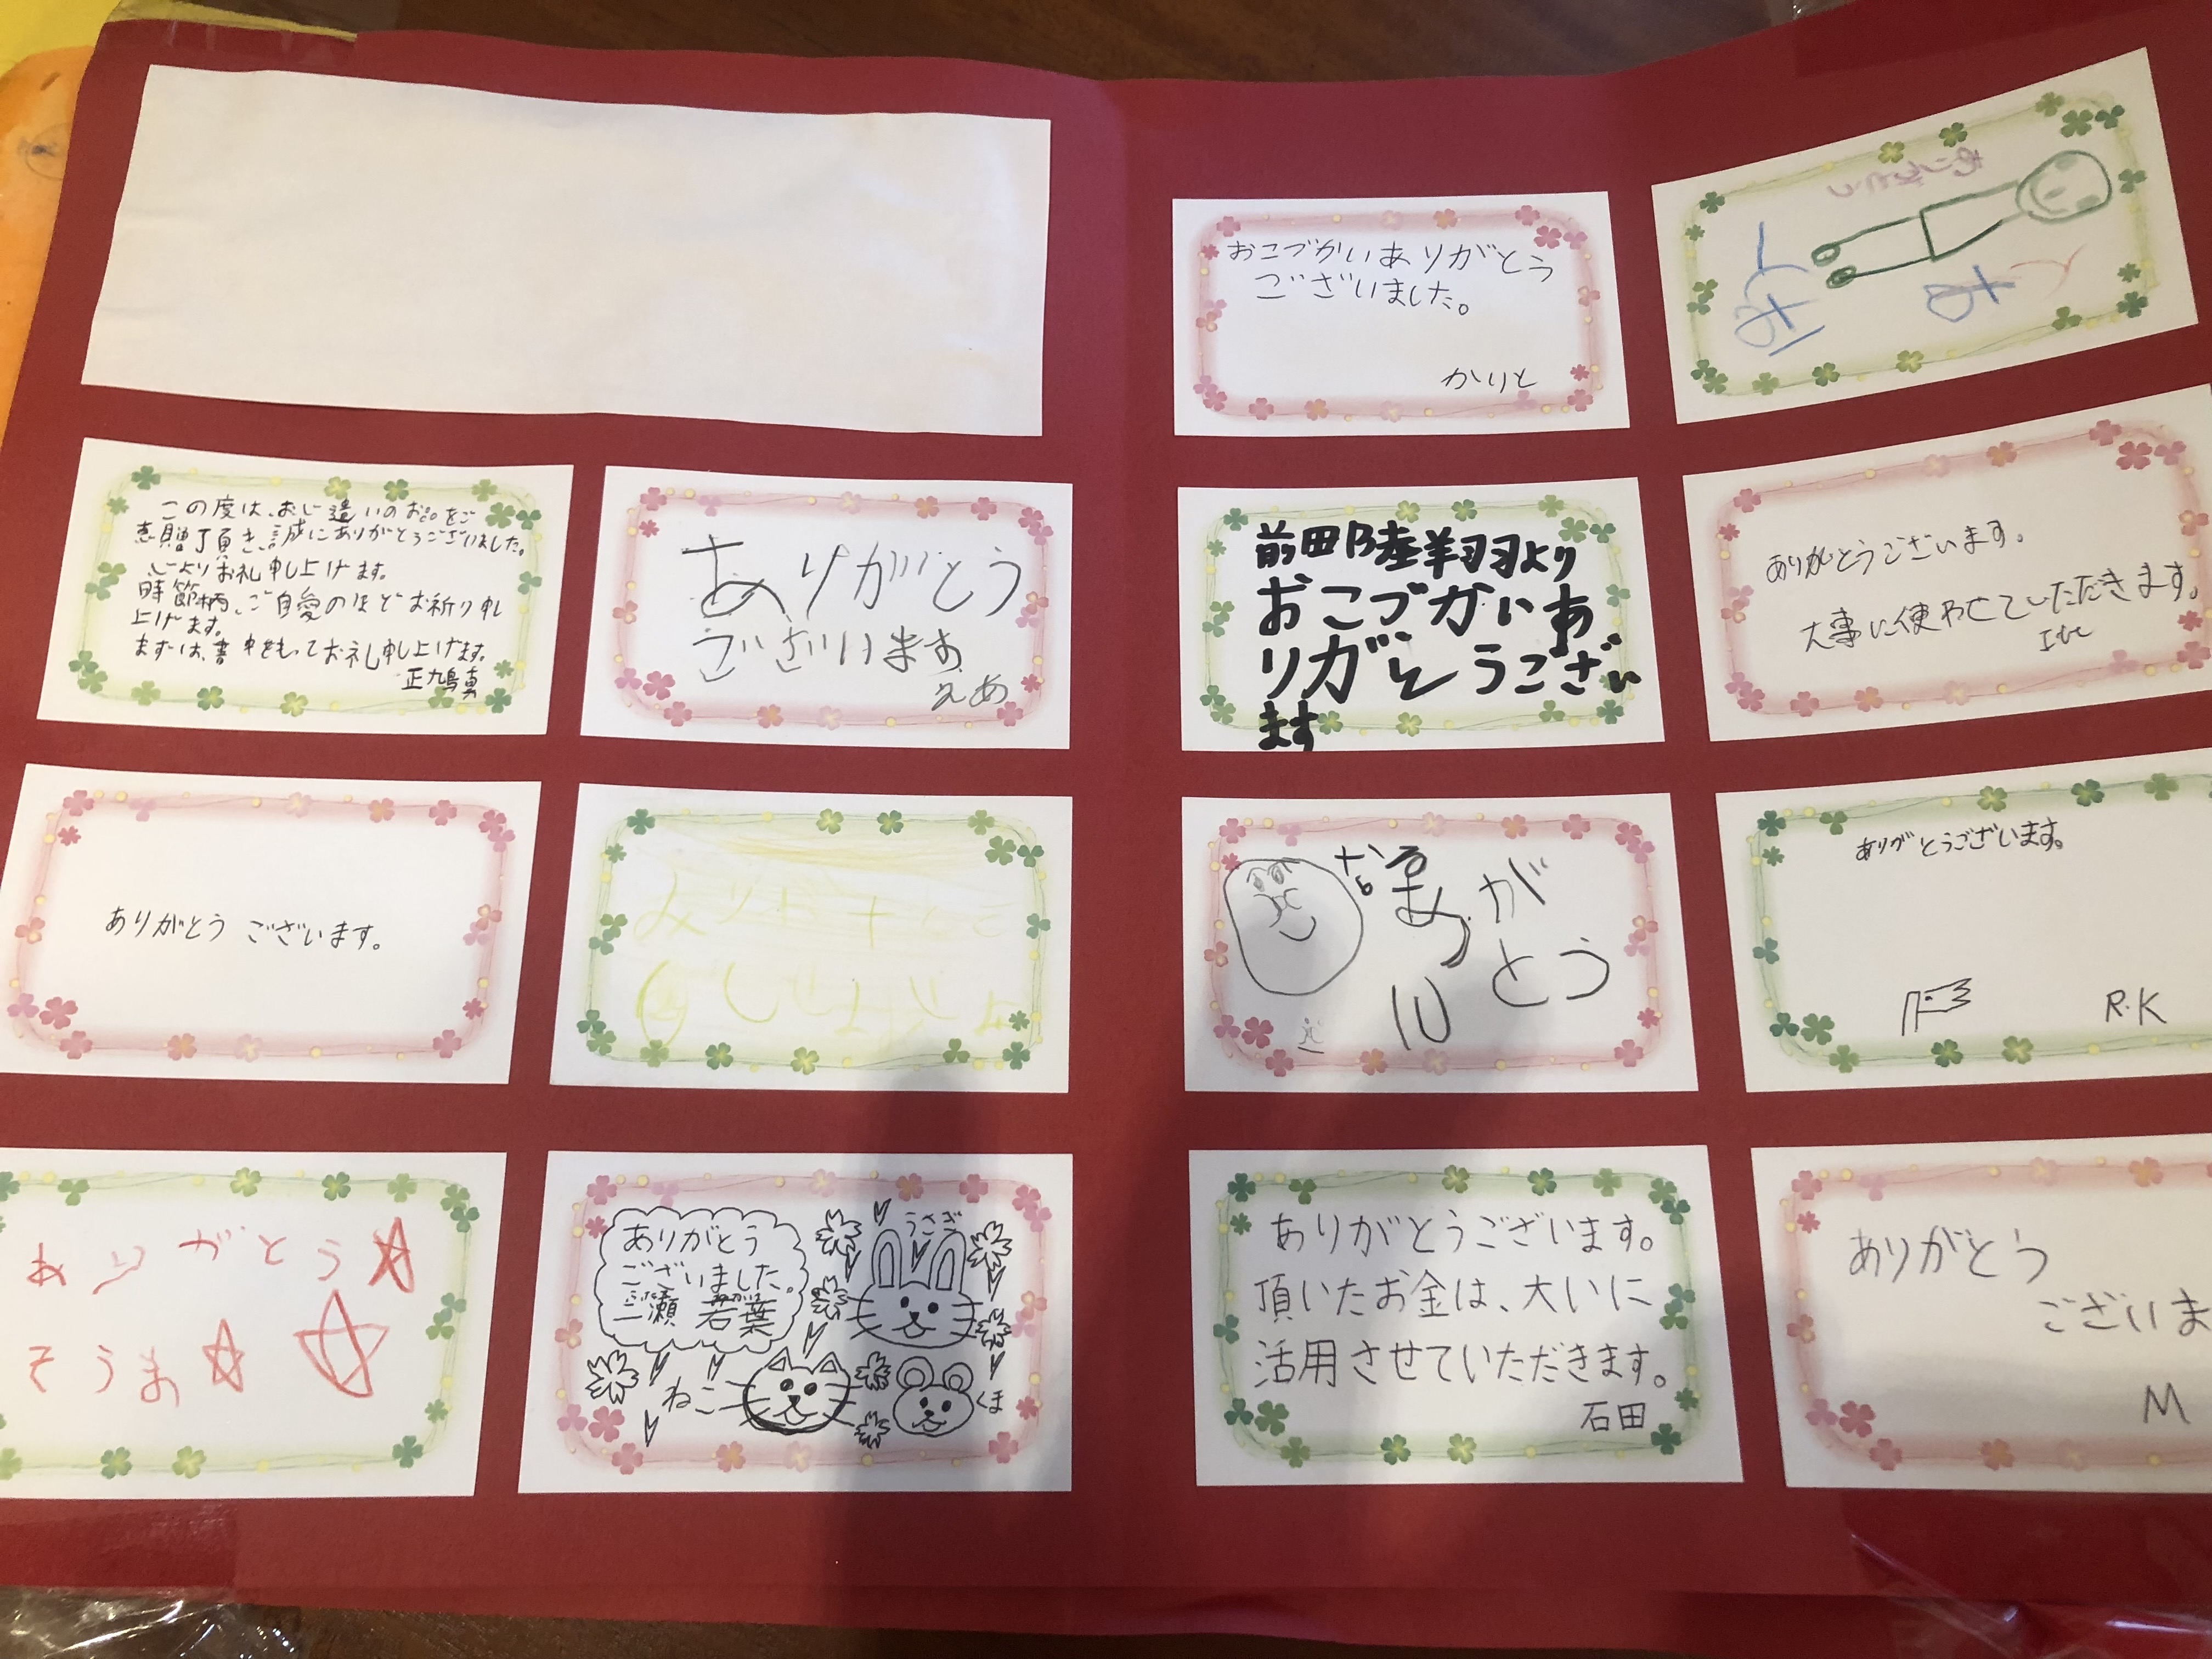 おこづかいありがとう
ございました。
かりと
ありがとう
お
お
この度は、おこ遣いのお心をご
恵贈頂き、誠にありがとうございました。
心よりお礼申し上げます。
時節柄、ご自愛のほどお祈り申し
上げます。
まずは、書中をもってお礼申し上げます。
ありがとう
ございます
えあ
前田陸翔より
おこづかいあ
りがとうござい
ます
ありがとうございます。
大事に使わせていただきます。
ありがとう ございます。
がとう
ありがとうございます。
R.K
ありがとう
そうま
ありがとう
ございました。
二瀬 若葉
うさぎ
ねこ
くま
ありがとうございます。
頂いたお金は、大いに
活用させていただきます。
石田
ありがとう
ございま
M